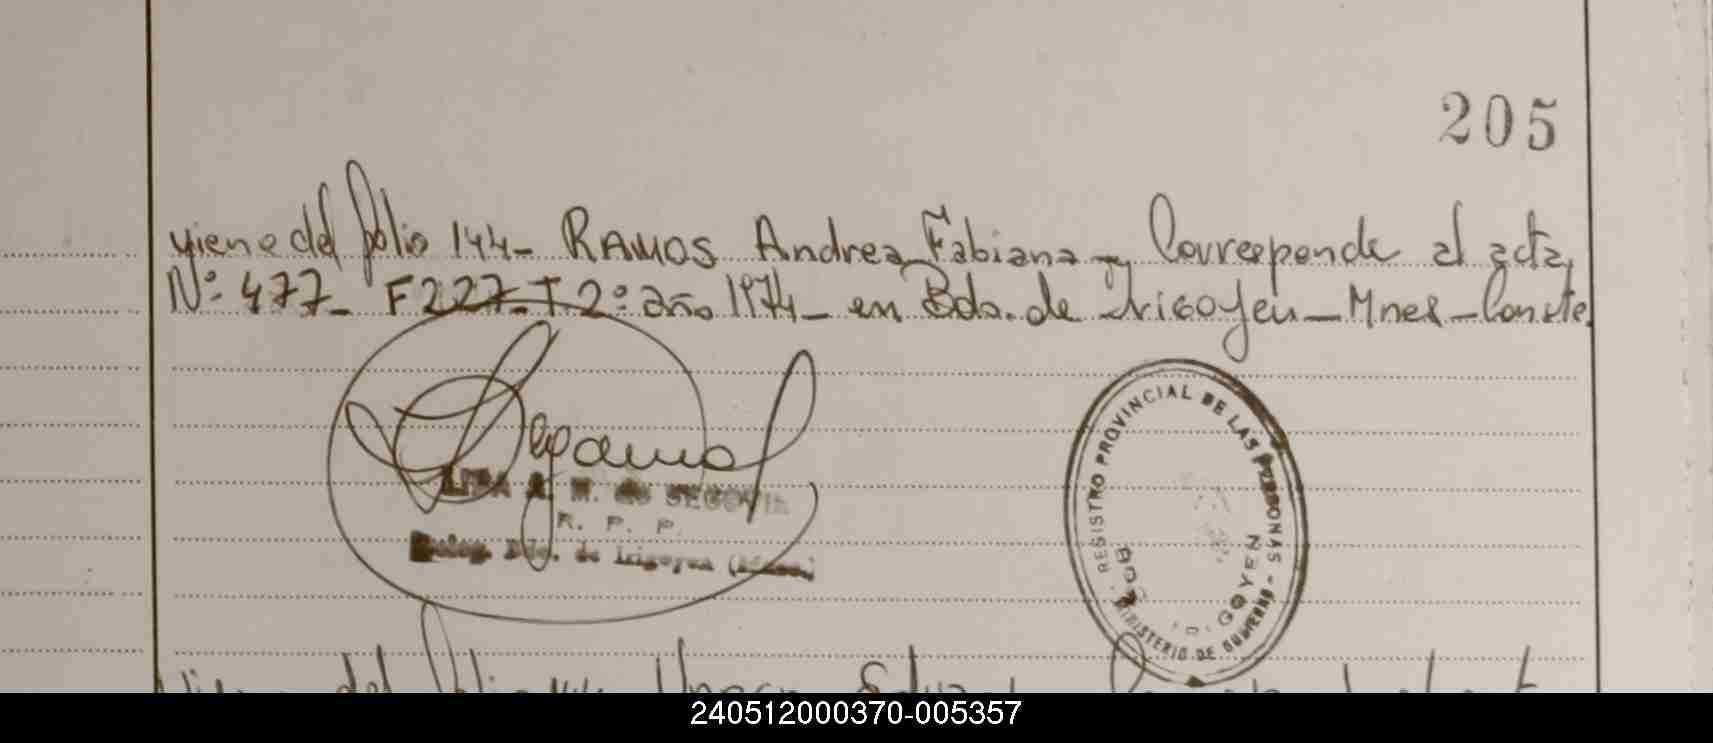 205
viene del folio 144- RAMOS Andrea Fabiana - Corresponde al acta
Nº 477- F 227- T 2º año 1974- en Bdo. de Irigoyen - Mnes - Conste
A. M. de SEGOVIA
R. P. P.
Deleg. Bdo. de Irigoyen (Mnes.)
REGISTRO PROVINCIAL DE LAS PERSONAS - MINISTERIO DE GOBIERNO -
GOYEN
del folio
240512000370-005357